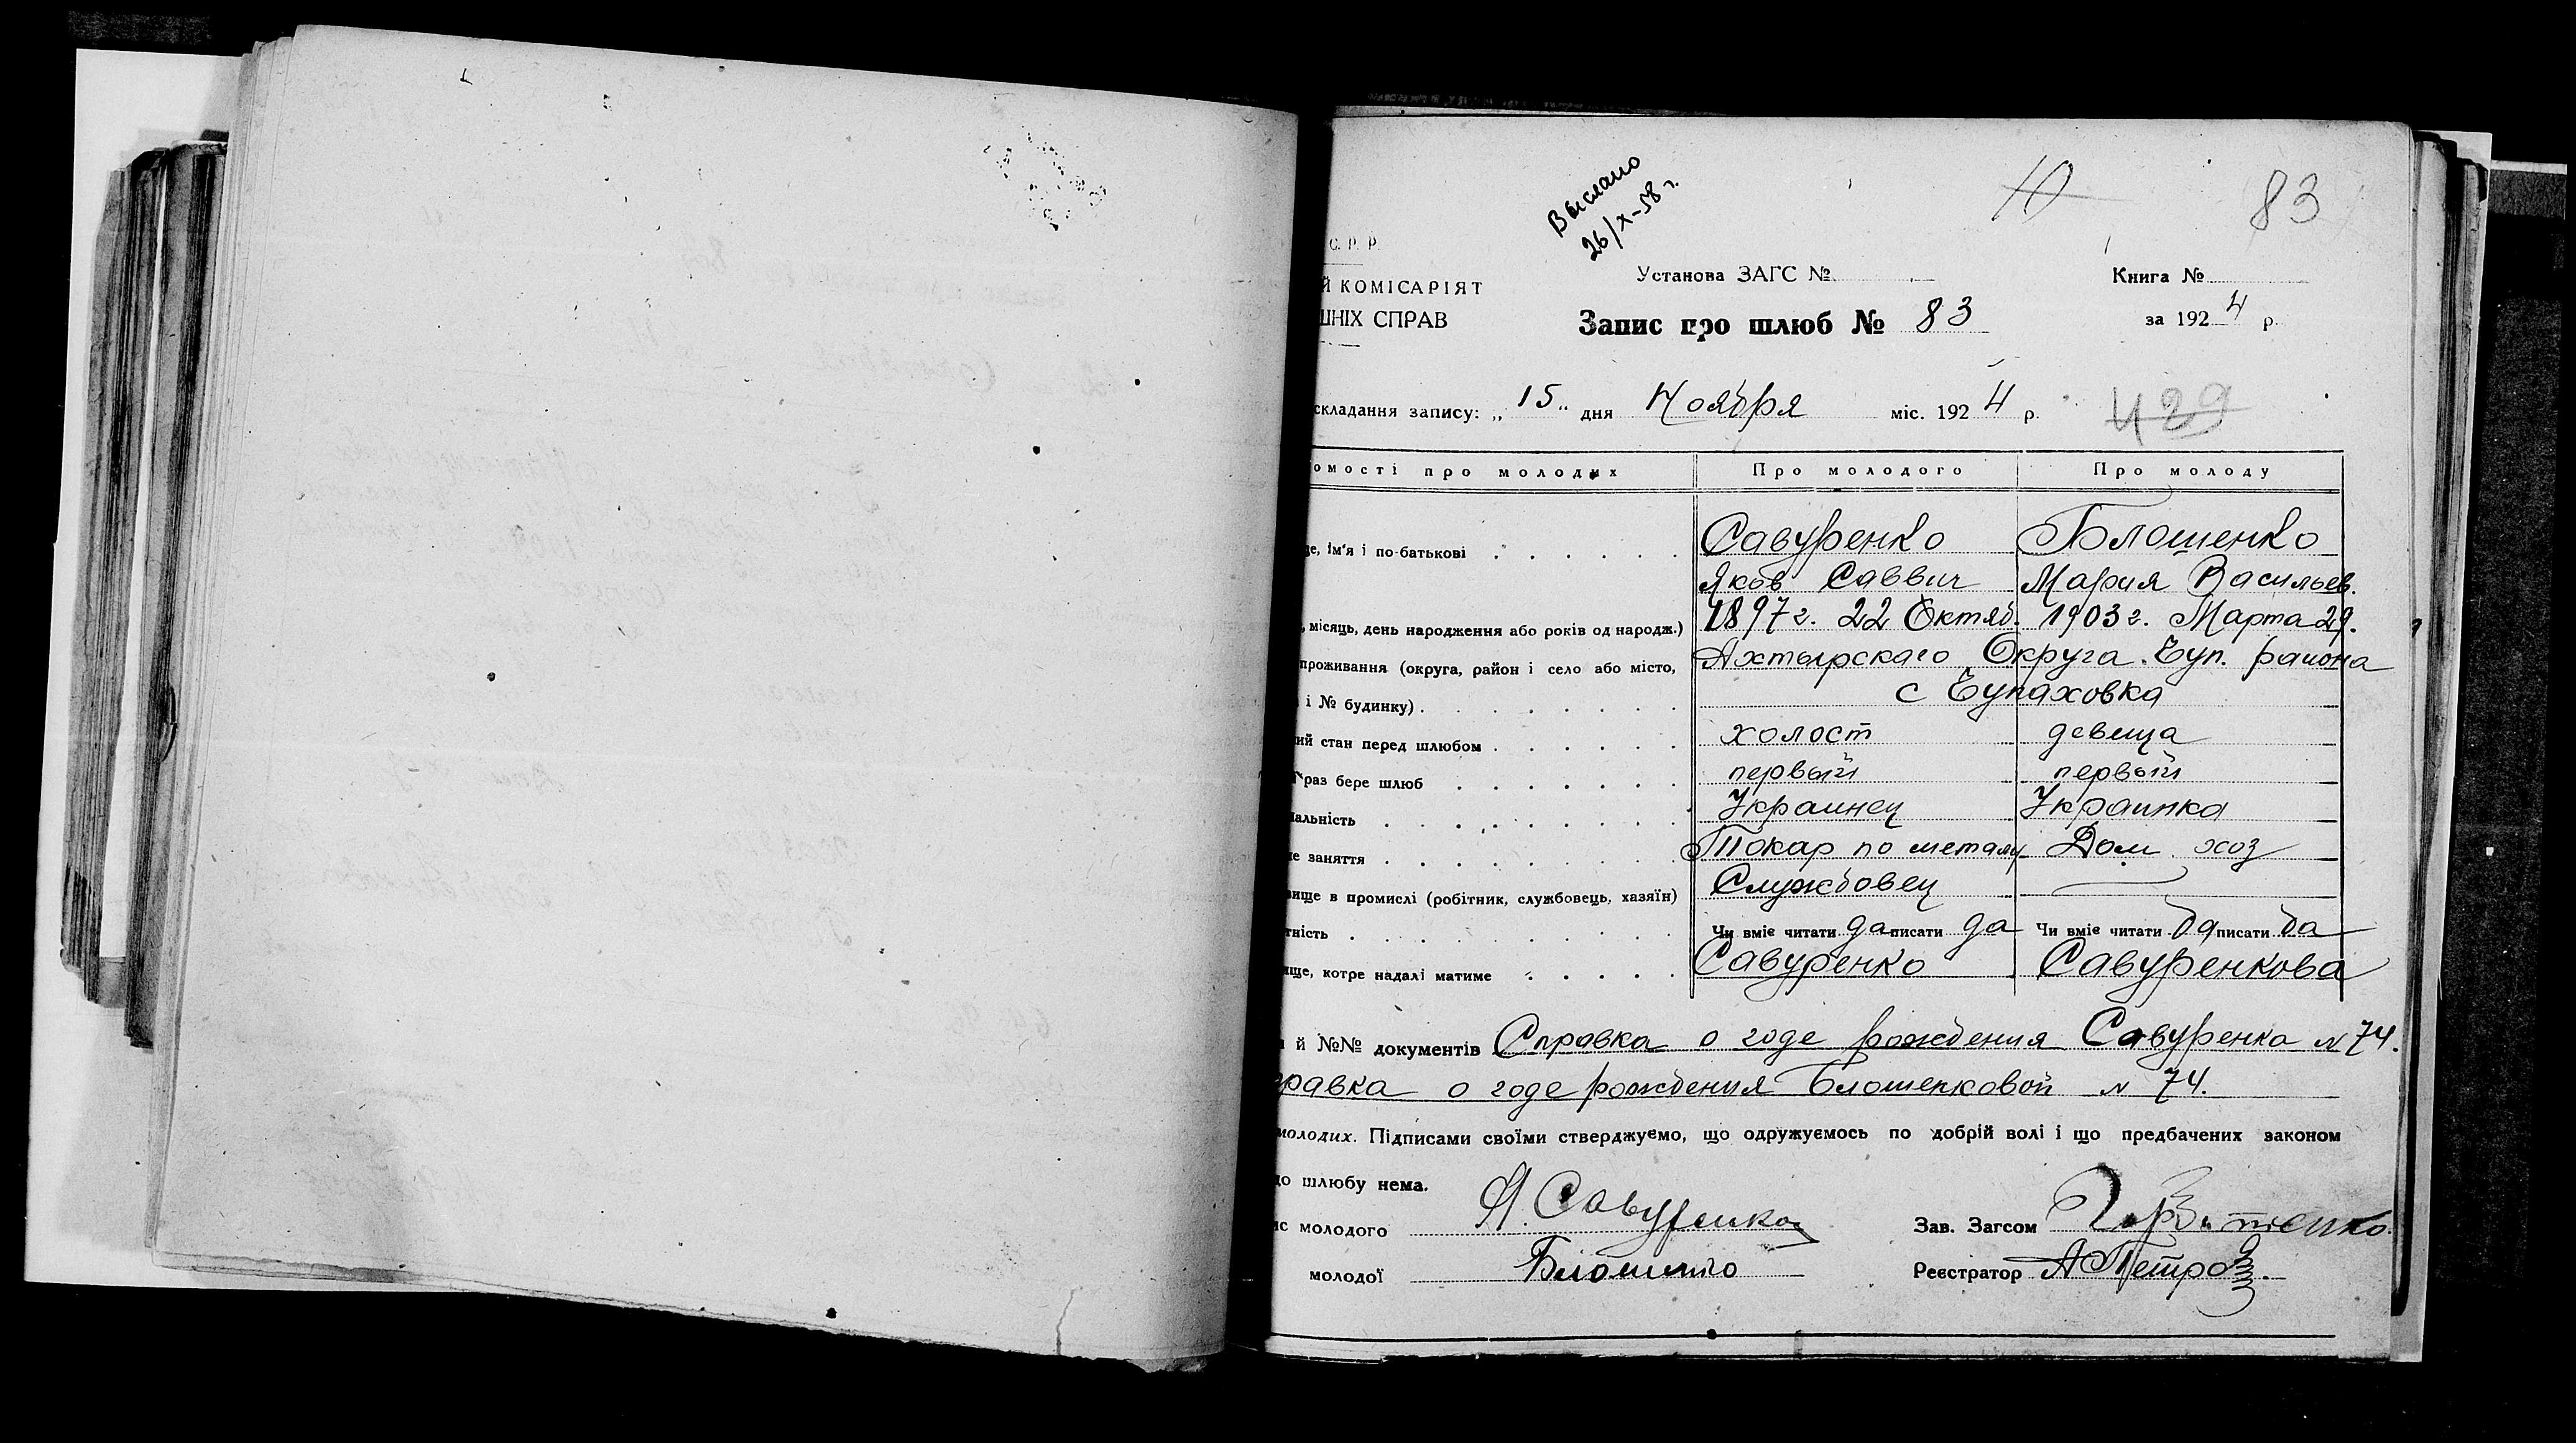 Выслано
26/X-58 г.
83
С. Р. Р.
Й КОМІСАРІЯТ
ШНІХ СПРАВ
Установа ЗАГС №
Книга №
Запис про шлюб № 83
за 1924 р.
складання запису: „15" дня Ноября міс. 1924 р.
429
омості про молодих Про молодого Про молоду
ще, ім'я і по-батькові Савуренко Блошенко
Яков Саввич Мария Васильев.
, місяць, день народження або років од народж.) 1897 г. 22 Октяб. 1903 г. Марта 29.
проживання (округа, район і село або місто, Ахтырскаго Округа. Чуп. района
і № будинку) с Чупаховка
ий стан перед шлюбом холост девица
раз бере шлюб первый первый
альність Украинец Украинка
не заняття Токар по металу Дом. хоз
вище в промислі (робітник, службовець, хазяїн) Службовец
тність Чи вміє читати да писати да Чи вміє читати да писати да
ище, котре надалі матиме Савуренко Савуренкова
й №№ документів Справка о годе рождения Савуренка N 74.
правка о годе рождения Блошенковой N 74.
молодих. Підписами своїми стверджуємо, що одружуємось по добрій волі і що предбачених законом
до шлюбу нема.
ис молодого Я. Савуренко Зав. Загсом
молодої Блошенко Реєстратор А Петров